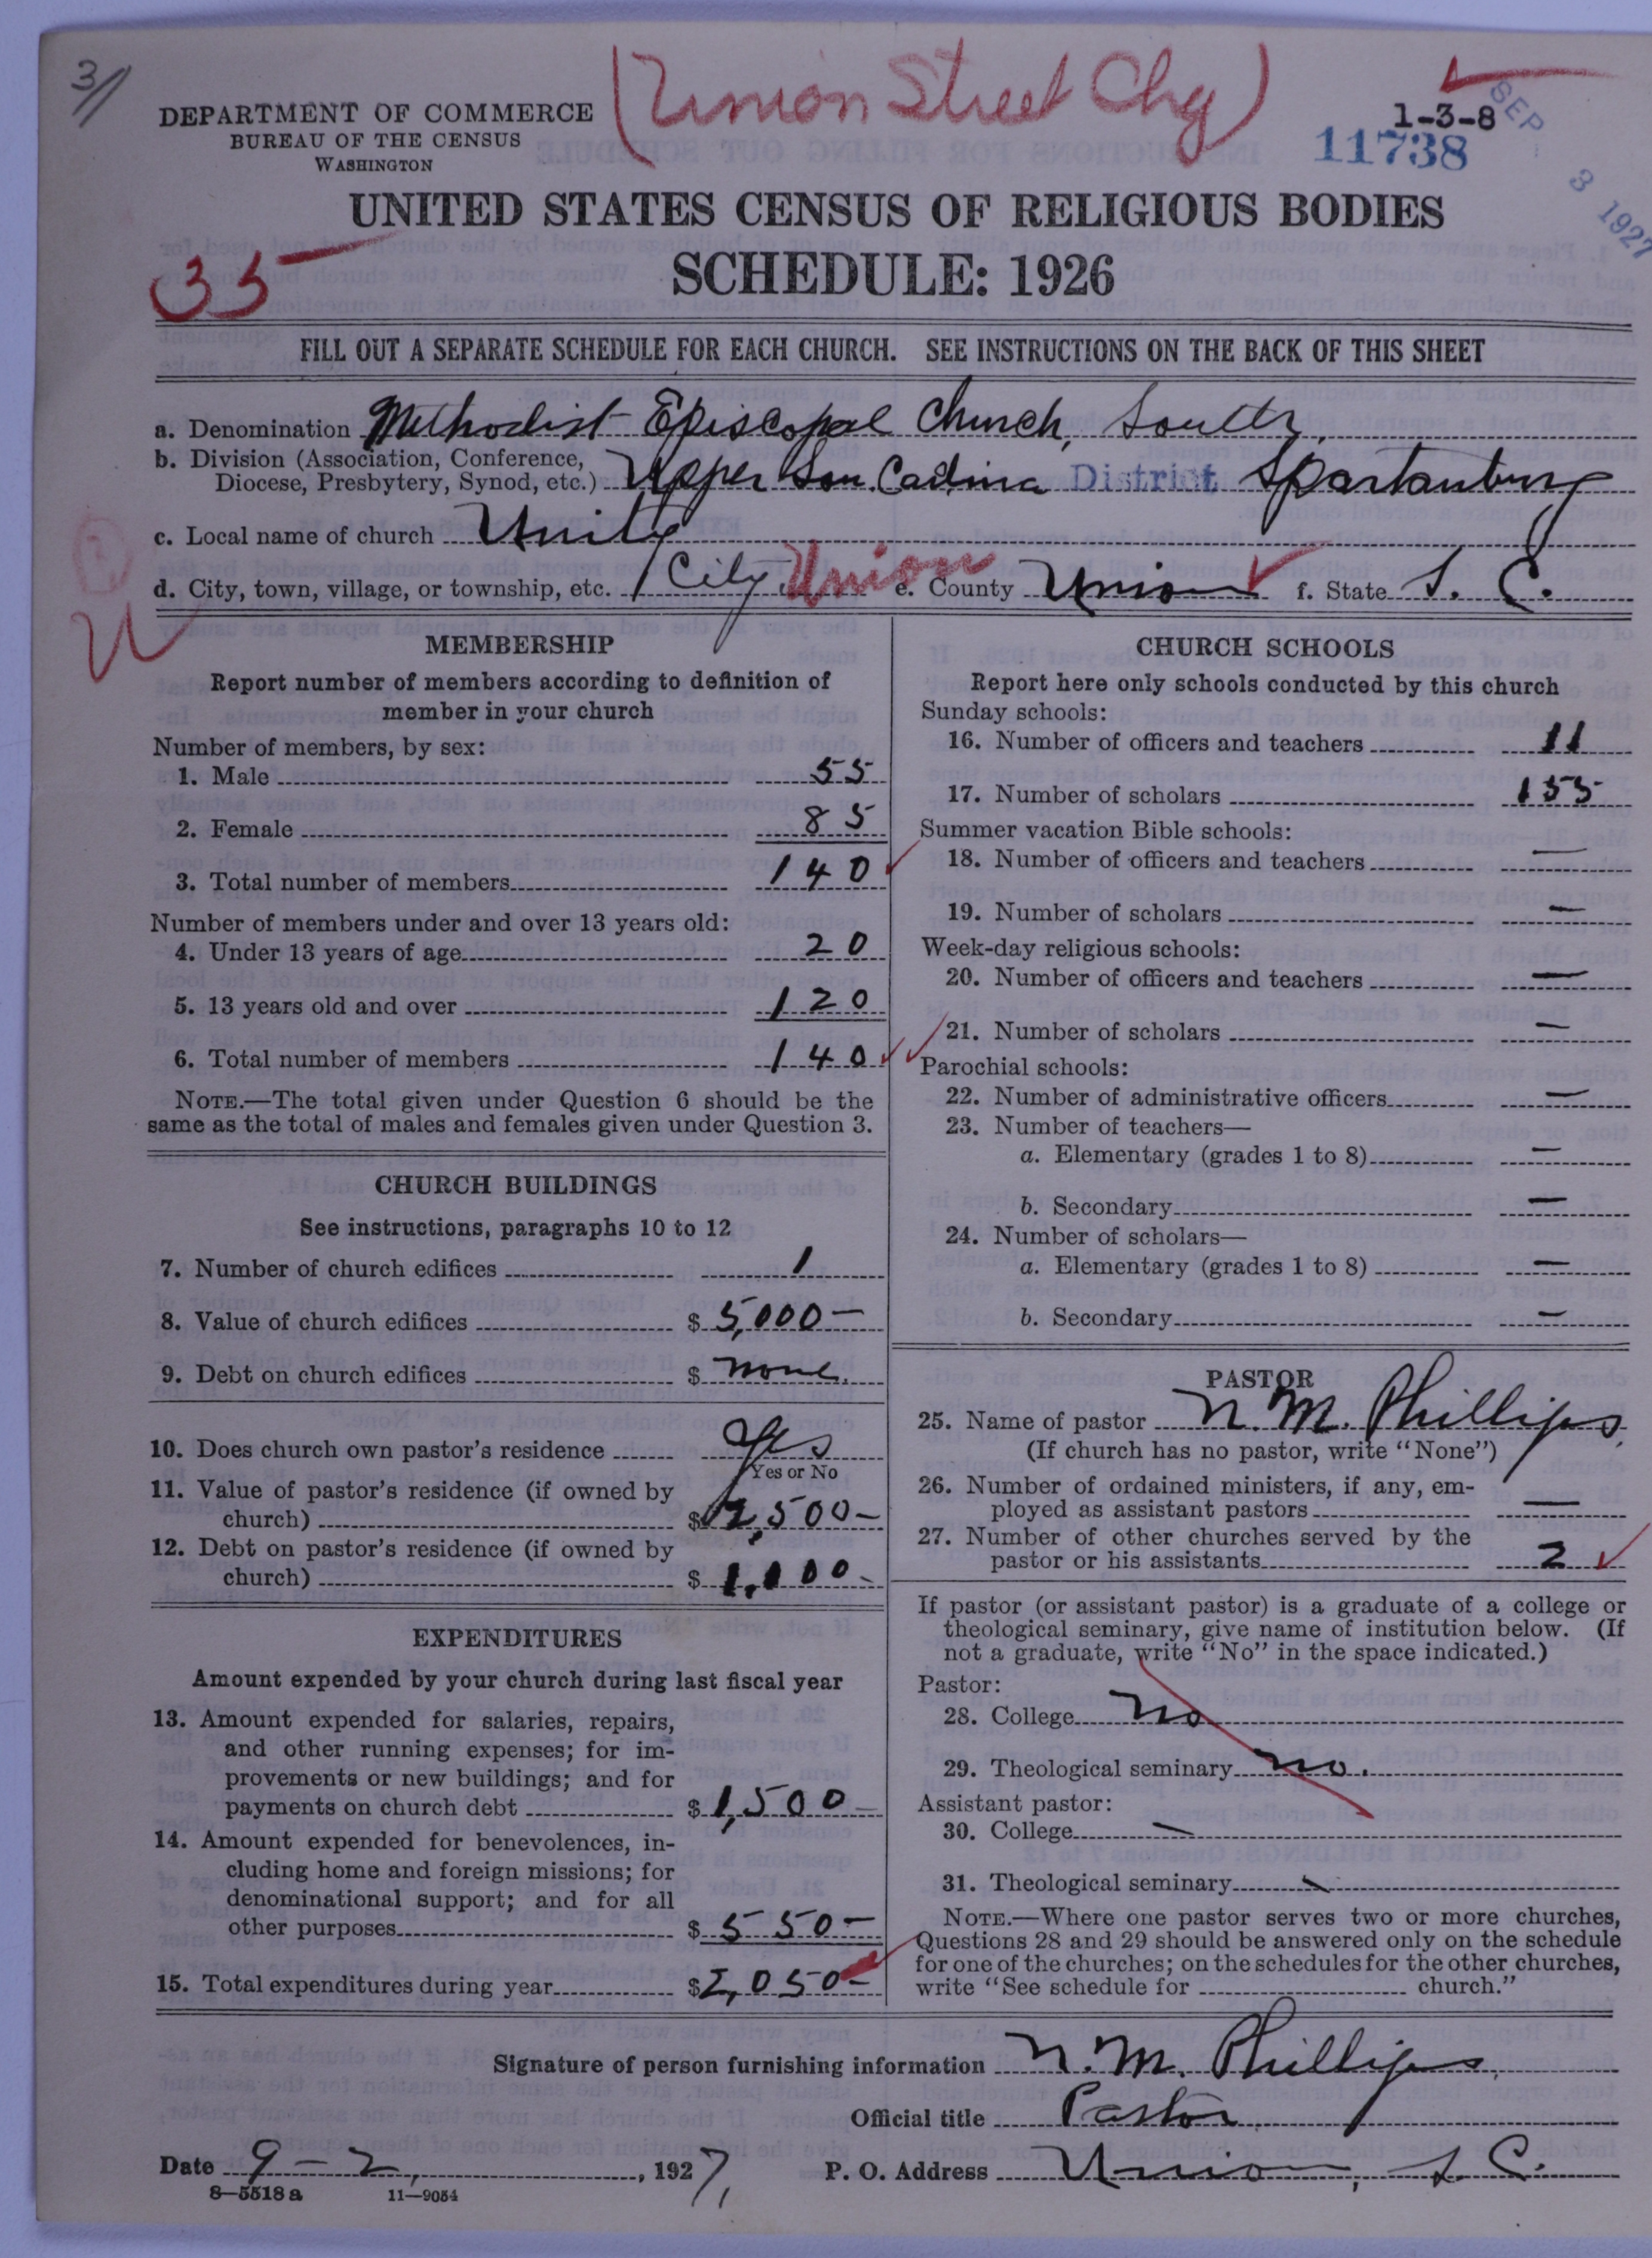 31
(Union Street Chg)
DEPARTMENT OF COMMERCE
BUREAU OF THE CENSUS
WASHINGTON
1-3-8
11738
SEP 3 1927
UNITED STATES CENSUS OF RELIGIOUS BODIES
SCHEDULE: 1926
35
FILL OUT A SEPARATE SCHEDULE FOR EACH CHURCH. SEE INSTRUCTIONS ON THE BACK OF THIS SHEET
a. Denomination Methodist Episcopal Church, South.
b. Division (Association, Conference,
Diocese, Presbytery, Synod, etc.) Upper Sou. Carolina District Spartanburg
c. Local name of church Unity
d. City, town, village, or township, etc. City Union e. County Union f. State S. C.
MEMBERSHIP
Report number of members according to definition of
member in your church
Number of members, by sex:
1. Male 55
2. Female 85
3. Total number of members 140
Number of members under and over 13 years old:
4. Under 13 years of age 20
5. 13 years old and over 120
6. Total number of members 140
NOTE.—The total given under Question 6 should be the
same as the total of males and females given under Question 3.
CHURCH BUILDINGS
See instructions, paragraphs 10 to 12
7. Number of church edifices 1
8. Value of church edifices $ 5,000—
9. Debt on church edifices $ none.
10. Does church own pastor's residence Yes
Yes or No
11. Value of pastor's residence (if owned by
church) $ 2,500—
12. Debt on pastor's residence (if owned by
church) $ 1,100—
EXPENDITURES
Amount expended by your church during last fiscal year
13. Amount expended for salaries, repairs,
and other running expenses; for im-
provements or new buildings; and for
payments on church debt $ 1,500—
14. Amount expended for benevolences, in-
cluding home and foreign missions; for
denominational support; and for all
other purposes $ 550—
15. Total expenditures during year $ 2,050—
CHURCH SCHOOLS
Report here only schools conducted by this church
Sunday schools:
16. Number of officers and teachers 11
17. Number of scholars 155
Summer vacation Bible schools:
18. Number of officers and teachers —
19. Number of scholars —
Week-day religious schools:
20. Number of officers and teachers —
21. Number of scholars —
Parochial schools:
22. Number of administrative officers —
23. Number of teachers—
a. Elementary (grades 1 to 8) —
b. Secondary —
24. Number of scholars—
a. Elementary (grades 1 to 8) —
b. Secondary —
PASTOR
25. Name of pastor N. M. Phillips
(If church has no pastor, write "None")
26. Number of ordained ministers, if any, em-
ployed as assistant pastors —
27. Number of other churches served by the
pastor or his assistants 2
If pastor (or assistant pastor) is a graduate of a college or
theological seminary, give name of institution below. (If
not a graduate, write "No" in the space indicated.)
Pastor:
28. College No
29. Theological seminary no.
Assistant pastor:
30. College —
31. Theological seminary —
NOTE.—Where one pastor serves two or more churches,
Questions 28 and 29 should be answered only on the schedule
for one of the churches; on the schedules for the other churches,
write "See schedule for church."
Signature of person furnishing information N. M. Phillips
Official title Pastor
Date 9-2, 1927, P. O. Address Union, S. C.
8—5518 a 11—9054